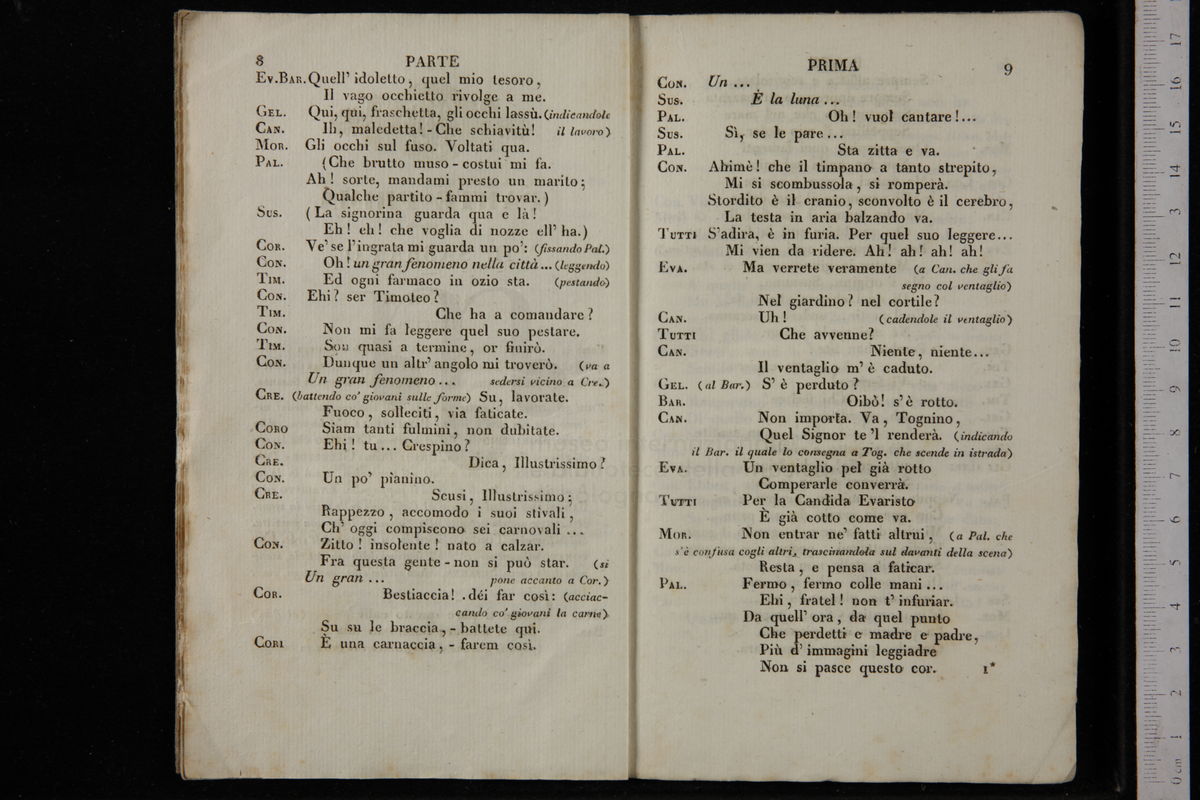 8 PARTE
Ev.Bar. Quell' idoletto, quel mio tesoro,
Il vago occhietto rivolge a me.
Gel. Qui, qui, fraschetta, gli occhi lassù. (indicandole
Can. Ih, maledetta! - Che schiavitù! il lavoro)
Mor. Gli occhi sul fuso. Voltati qua.
Pal. (Che brutto muso - costui mi fa.
Ah! sorte, mandami presto un marito;
Qualche partito - fammi trovar.)
Sus. (La signorina guarda qua e là!
Eh! eh! che voglia di nozze ell' ha.)
Cor. Ve' se l'ingrata mi guarda un po': (fissando Pal.)
Con. Oh! un gran fenomeno nella città... (leggendo)
Tim. Ed ogni farmaco in ozio sta. (pestando)
Con. Ehi? ser Timoteo?
Tim. Che ha a comandare?
Con. Non mi fa leggere quel suo pestare.
Tim. Son quasi a termine, or finirò.
Con. Dunque un altr' angolo mi troverò. (va a
Un gran fenomeno... sedersi vicino a Cre.)
Cre. (battendo co' giovani sulle forme) Su, lavorate.
Fuoco, solleciti, via faticate.
Coro Siam tanti fulmini, non dubitate.
Con. Ehi! tu... Crespino?
Cre. Dica, Illustrissimo?
Con. Un po' pianino.
Cre. Scusi, Illustrissimo;
Rappezzo, accomodo i suoi stivali,
Ch' oggi compiscono sei carnovali...
Con. Zitto! insolente! nato a calzar.
Fra questa gente - non si può star. (si
Un gran... pone accanto a Cor.)
Cor. Bestiaccia! .déi far così: (acciac-
cando co' giovani la carne)
Su su le braccia, - battete qui.
Cori È una carnaccia, - farem così.
PRIMA 9
Con. Un...
Sus. È la luna...
Pal. Oh! vuol cantare!...
Sus. Sì, se le pare...
Pal. Sta zitta e va.
Con. Ahimè! che il timpano a tanto strepito,
Mi si scombussola, si romperà.
Stordito è il cranio, sconvolto è il cerebro,
La testa in aria balzando va.
Tutti S'adira, è in furia. Per quel suo leggere...
Mi vien da ridere. Ah! ah! ah! ah!
Eva. Ma verrete veramente (a Can. che gli fa
segno col ventaglio)
Nel giardino? nel cortile?
Can. Uh! (cadendole il ventaglio)
Tutti Che avvenne?
Can. Niente, niente...
Il ventaglio m' è caduto.
Gel. (al Bar.) S' è perduto?
Bar. Oibò! s'è rotto.
Can. Non importa. Va, Tognino,
Quel Signor te 'l renderà. (indicando
il Bar. il quale lo consegna a Tog. che scende in istrada)
Eva. Un ventaglio pel già rotto
Comperarle converrà.
Tutti Per la Candida Evaristo
È già cotto come va.
Mor. Non entrar ne' fatti altrui, (a Pal. che
s'è confusa cogli altri, trascinandola sul davanti della scena)
Resta, e pensa a faticar.
Pal. Fermo, fermo colle mani...
Ehi, fratel! non t' infuriar.
Da quell' ora, da quel punto
Che perdetti e madre e padre,
Più d' immagini leggiadre
Non si pasce questo cor. 1*
0 cm 1 2 3 4 5 6 7 8 9 10 11 12 13 14 15 16 17